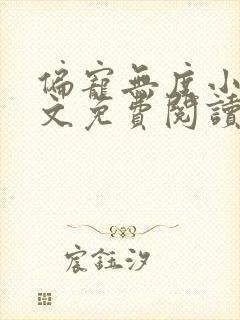 偏寵無度小
文免費閱讀
宸鈺汐